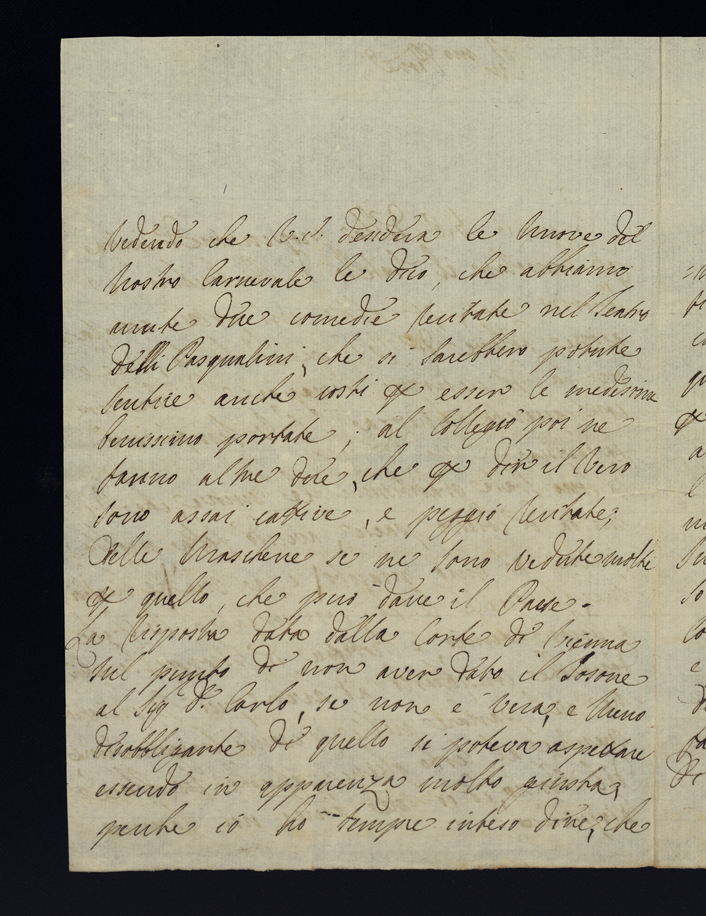 Vedendo che V.S. desidera le nuove del
nostro Carnevale le dico, che abbiamo
avute due comedie recitate nel Teatro
delli Pasqualini, che si sarebbero potute
sentire anche costì per esser le medesime
benissimo portate; al Collegio poi ne
fanno altre due, che per dir il vero
sono assai cattive, e peggio recitate;
Delle Maschere se ne sono vedute molte
per quello, che può dare il Paese.
La risposta data dalla Corte di Vienna
sul punto di non aver dato il Tosone
al Sig.r D. Carlo, se non è vera, è meno
disobbligante di quello si poteva aspettare
essendo in apparenza molto giusta,
perche io ho sempre inteso dire, che